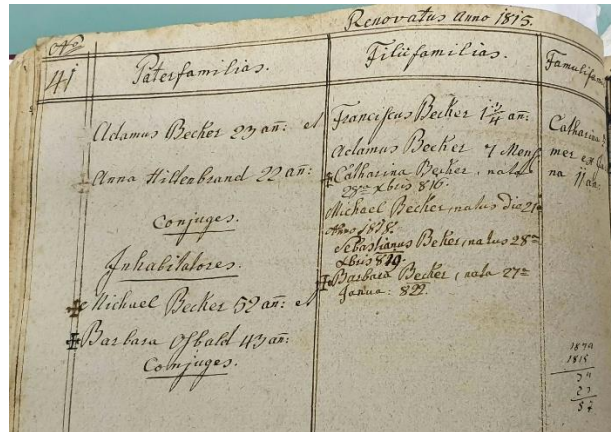 Renovatus Anno 1815.
Nº
41
Paterfamilias.
Filiifamilias.
Adamus Becker 23 añ: et
Anna Hillenbrand 22 añ:
Conjuges.
Inhabitatores.
Michael Becker 52 añ: et
Barbara Osbald 43 añ:
Conjuges.
Franciscus Becker 1 3/4 añ:
Adamus Becker 7 Mens
Catharina Becker, nata
Xbris 816.
Michael Becker, natus die 21
Anno 1818.
Sebastianus Beker, natus 28ª
Xbris 819.
Barbara Becker, nata 27ª
Janua: 822.
Famulifam
Catharina
mer ex
na 11 añ:
1815